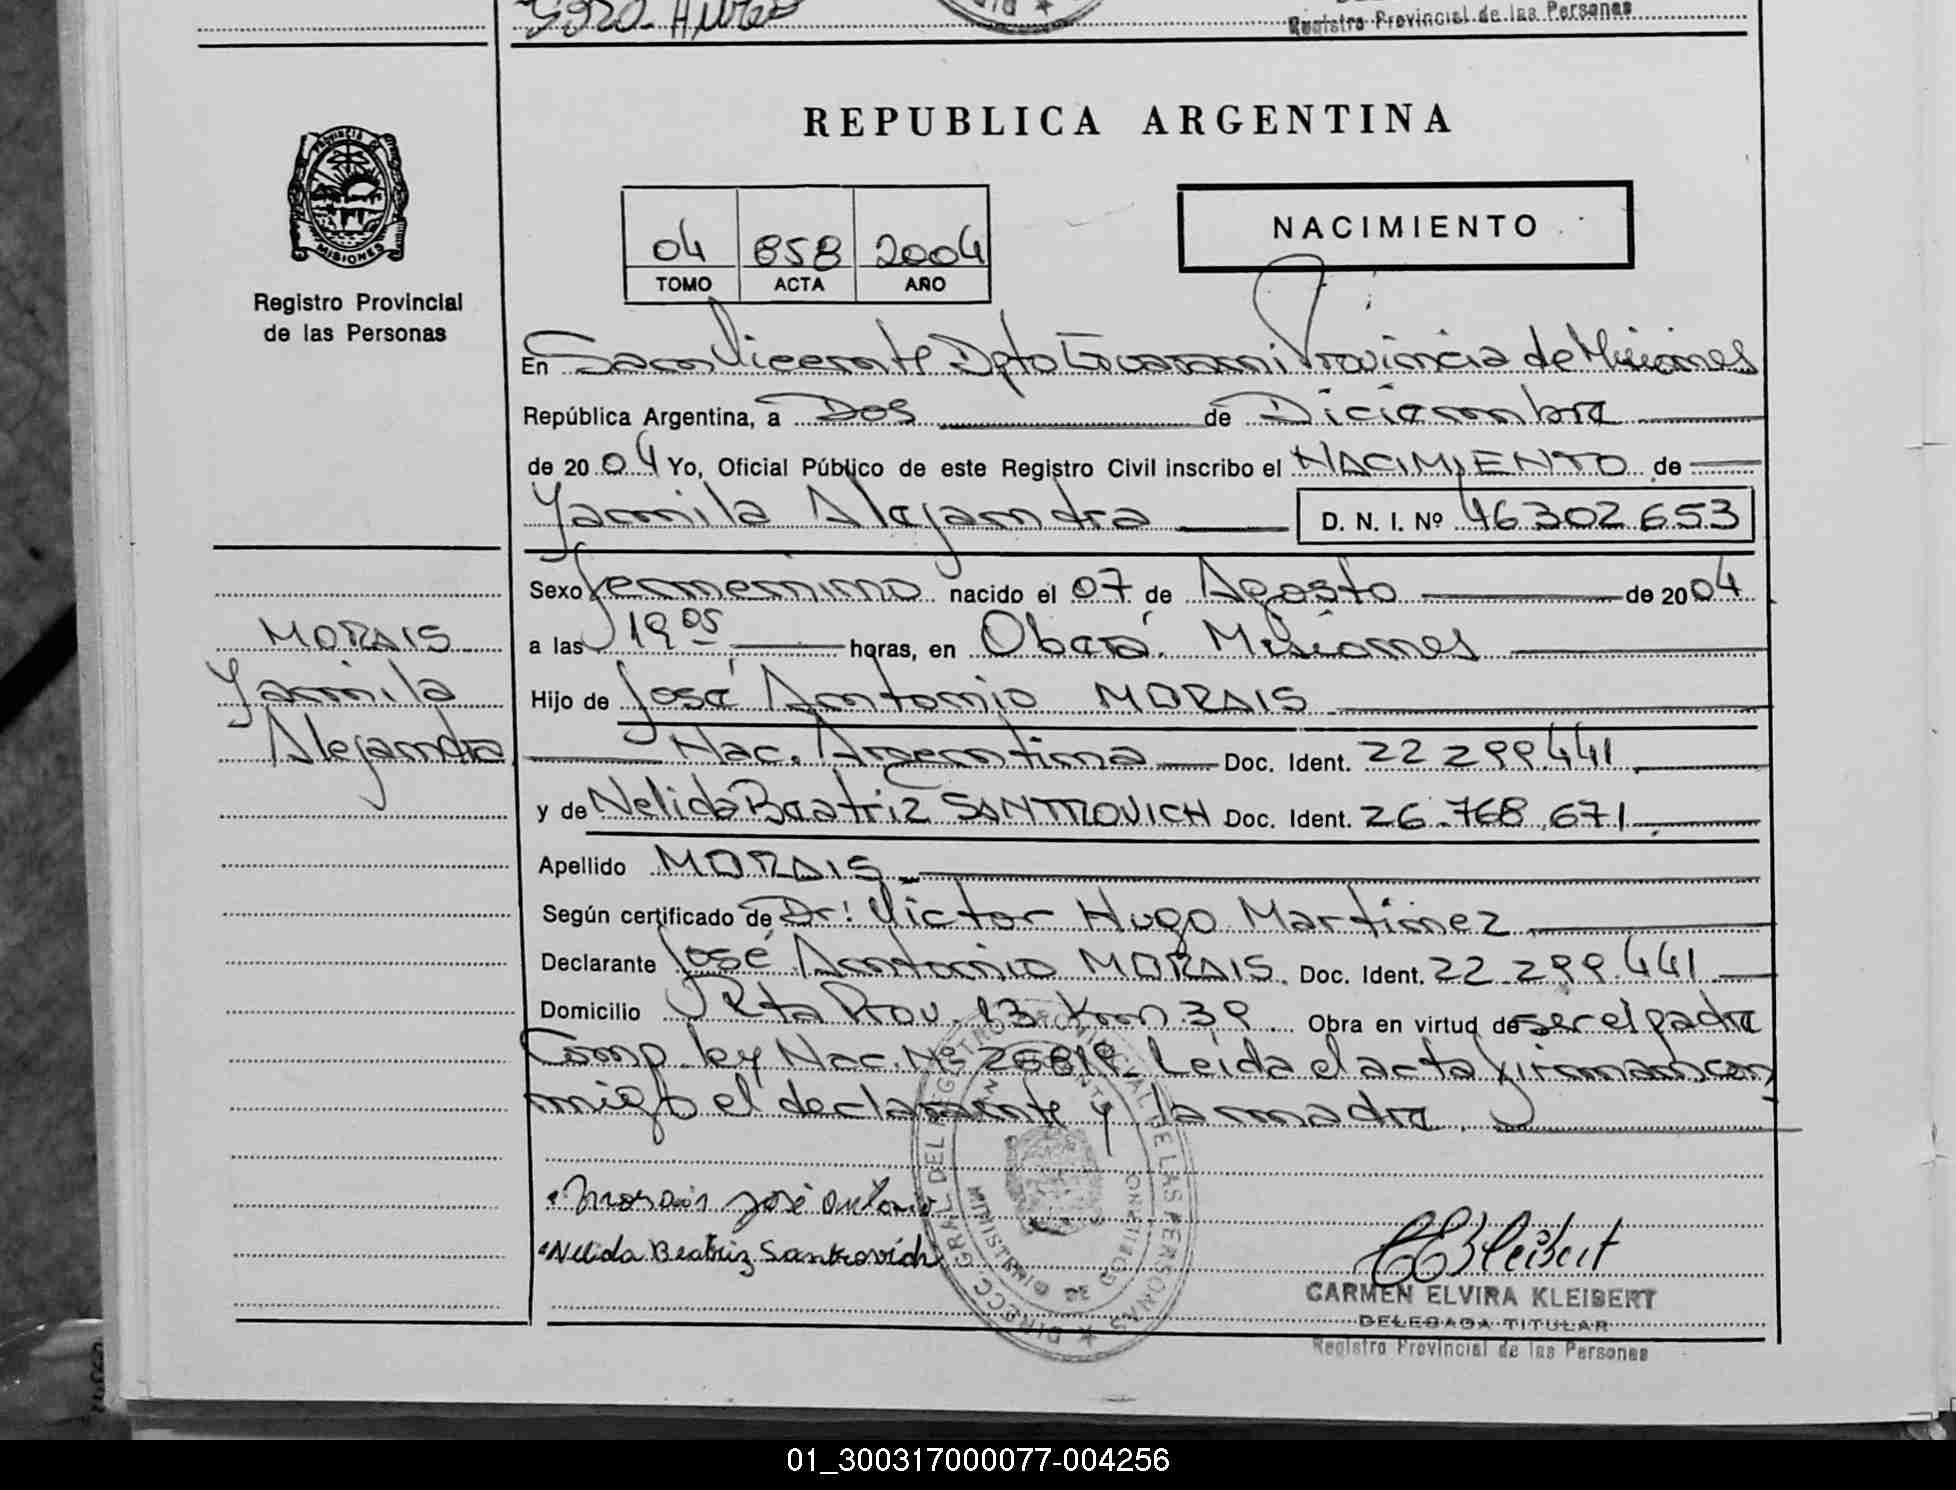 Registro Provincial de las Personas
REPUBLICA ARGENTINA
PROVINCIA DE
MISIONES
Registro Provincial
de las Personas
04 858 2004
TOMO ACTA AÑO
NACIMIENTO
En San Vicente Dpto Guarani Provincia de Misiones
República Argentina, a Dos de Diciembre
de 2004 Yo, Oficial Público de este Registro Civil inscribo el NACIMIENTO de
Yamila Alejandra D. N. I. Nº 46302653
Sexo femenino nacido el 07 de Agosto de 2004
MORAIS
Yamila
Alejandra
a las 19 05 horas, en Oberá. Misiones
Hijo de José Antonio MORAIS
Nac. Argentina Doc. Ident. 22 299.441
y de Nelida Beatriz SANTROVICH Doc. Ident. 26.768.671
Apellido MORAIS
Según certificado de Dr. Victor Hugo Martinez
Declarante José Antonio MORAIS. Doc. Ident. 22.299.441
Domicilio Rta Prov. 13 Km 39 Obra en virtud de ser el padre
Comp. ley Nac. Nº 25819. Leida el acta firman con
migo el declarante y la madre.
Morais José Antonio
Nelida Beatriz Santrovich
DIRECC. GRAL. DEL REGISTRO PROVINCIAL DE LAS PERSONAS
MINISTERIO DE GOBIERNO
CEKleibert
CARMEN ELVIRA KLEIBERT
DELEGADA TITULAR
Registro Provincial de las Personas
01_300317000077-004256